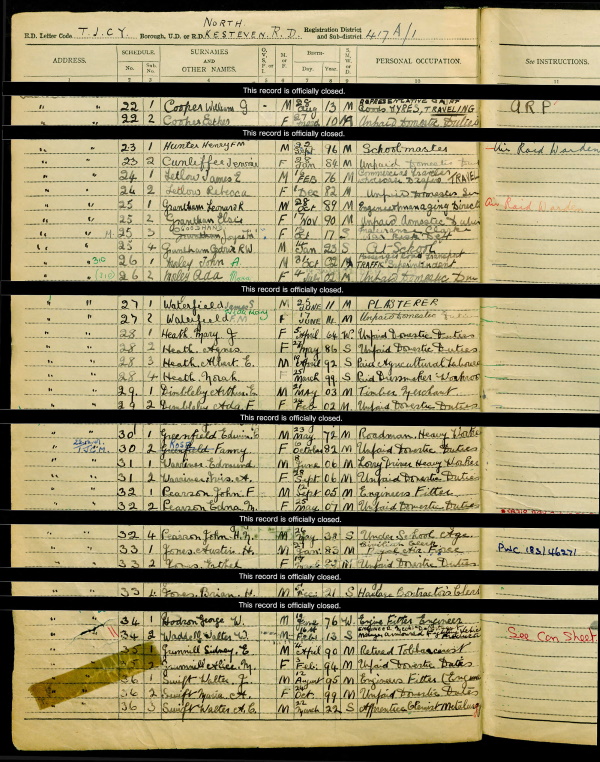 NORTH
R.D. Letter Code T.J.C.Y. Borough, U.D. or R.D. KESTEVEN. R.D. Registration District and Sub-district 417 A/1
ADDRESS. SCHEDULE. SURNAMES AND OTHER NAMES. M. or F. BIRTH— PERSONAL OCCUPATION. See INSTRUCTIONS.
No. Sub. No. Day. Year.
This record is officially closed.
22 1 Cooper William G - M 28 Aug 13 M REPRESENTATIVE TYRES, TRAVELING A.R.P
22 2 Cooper Esther F 27 10 M Unpaid Domestic Duties
This record is officially closed.
23 1 Hunter Henry F M M 22 Sept 96 M Schoolmaster Air Raid Warden
23 2 Cunliffe F 28 Jan 84 M Unpaid Domestic
24 1 Tetlow James E M FEB 76 M Commercial Traveller
24 2 Tetlow Rebecca F Dec 82 M Unpaid Domestic
25 1 Grantham Leonard K M 28 Oct 89 M Engineer managing Direct Air Raid Warden
25 2 Grantham Elsie F Nov 90 M Unpaid Domestic Duties
25 3 Grantham Joyce F Oct 17 S Insurance Clerk
25 4 Grantham M 14 Jan 23 S At School
26 1 Morley John A. M 31 Oct 02 M Passenger Road Transport TRAFFIC Superintendent
26 2 Morley Ada F 4 02 M Unpaid Domestic
This record is officially closed.
27 1 Waterfield James S M JUNE 11 M PLASTERER
27 2 Waterfield F.M F 17 JUNE 14 M Unpaid Domestic
28 1 Heath Mary J F 5 April 64 W. Unpaid Domestic Duties
28 2 Heath, Agnes F May 86 S Unpaid Domestic Duties
28 3 Heath, Albert E. M April 92 S Paid Agricultural Labourer
28 4 Heath, Norah F March 99 S Paid Dressmaker
29 1 Dimbleby Arthur E M 21 MAY 03 M Timber Merchant
29 2 Dimbleby Ada F F Feb 02 M Unpaid Domestic Duties
This record is officially closed.
30 1 Greenfield Edwin E M 23 May 72 M Roadman, Heavy Worker
T.J.C.M. 30 2 Greenfield Fanny F October 82 M Unpaid Domestic Duties
31 1 Warrener Edmund M June 06 M Lorry Driver Heavy Worker
31 2 Warrener Iris. A. F 28 Sept 06 M Unpaid Domestic Duties
32 1 Pearson John F M 12 Sept 05 M Engineers Fitter
32 2 Pearson Edna M F 25 May 07 M Unpaid Domestic Duties
This record is officially closed.
32 4 Pearson John H. N. M 26 May 38 S Under School Age
33 1 Jones Austin H. M 27 Jan 83 M Civilian Clerk Royal Air Force PWC 183/46271
33 2 Jones Ethel F March 83 M Unpaid Domestic Duties
This record is officially closed.
33 4 Jones, Brian, H. M Dec 21 S Haulage Contractors Clerk
This record is officially closed.
34 1 Hodson George W. M June 76 W. Engine Fitter Engineer
34 2 Waddell Walter W. M Feb 13 S See Con Sheet
35 1 Gummill Sidney, E M April 90 M Retired Tobacconist
35 2 Gummill Alice M. F Feb 94 M Unpaid Domestic Duties
36 1 Swift Walter J. M 12 August 95 M Engineers Fitter
36 2 Swift Maria A. F 24 Oct 99 M Unpaid Domestic Duties
36 3 Swift Walter A. C. M 22 March 22 S Apprentice Chemist Metallurgy